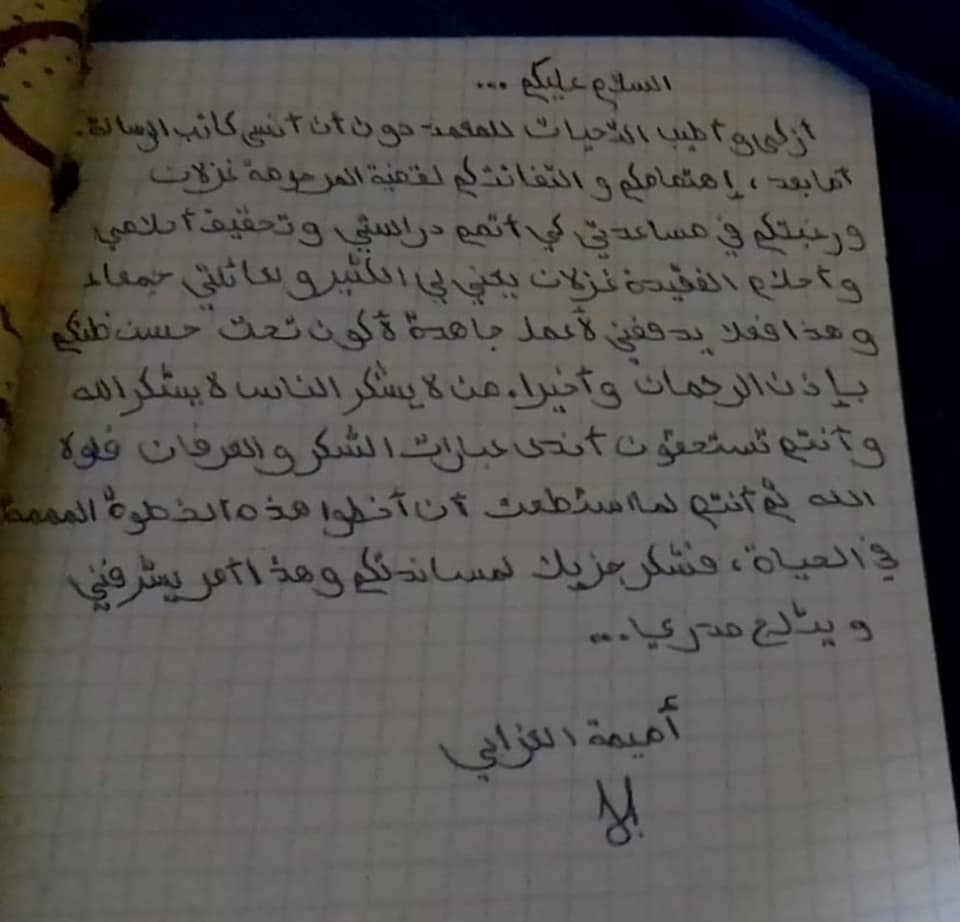 السلام عليكم ...
أزكى و أطيب التحيات للمقدمة دون أن أنسى كاتب الرسالة.
أما بعد، إهتمامكم و التفاتتكم لقضية المرحومة غزلان
ورغبتكم في مساعدتي كي أتمم دراستي و تحقيق أحلامي
و أحلام الفقيدة غزلان يعني لي الكثير و لعائلتي جمعاء
و هذا فعلا يدفعني لأعمل جاهدة لأكون تحت حسن ظنكم
بإذن الرحمان و أخيرا، من لا يشكر الناس لا يشكر الله
و أنتم تستحقون أندى عبارات الشكر و العرفان فلولا
الله ثم أنتم لما استطعت أن أخطوا هذه الخطوة المهمة
في الحياة، فشكر جزيلا لمساندتكم و هذا أمر يشرفني
و يثلج صدري...
أميمة العزابي